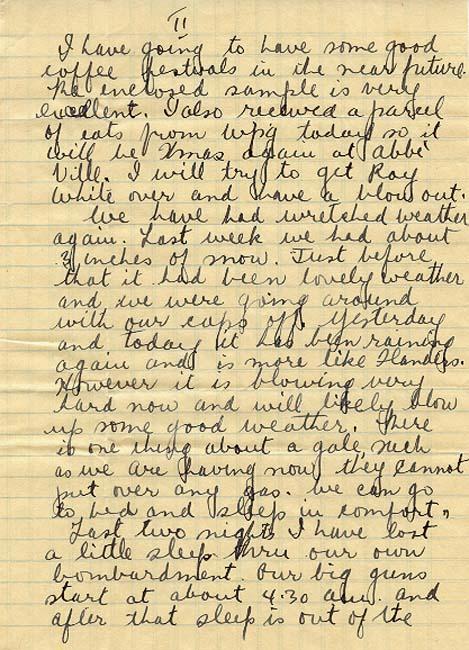 II
I have going to have some good
coffee festivals in the near future.
The enclosed sample is very
excellent. I also received a parcel
of eats from Wpg today so it
will be Xmas again at Abbé
Ville. I will try to get Roy
White over and have a blow out.
We have had wretched weather
again. Last week we had about
3 inches of snow. Just before
that it had been lovely weather
and we were going around
with our caps off. Yesterday
and today it has been raining
again and is more like Flanders.
However it is blowing very
hard now and will likely blow
up some good weather. There
is one thing about a gale, such
as we are having now they cannot
put over any gas. We can go
to bed and sleep in comfort,
Last two nights I have lost
a little sleep thru our own
bombardment. Our big guns
start at about 4.30 am. and
after that sleep is out of the